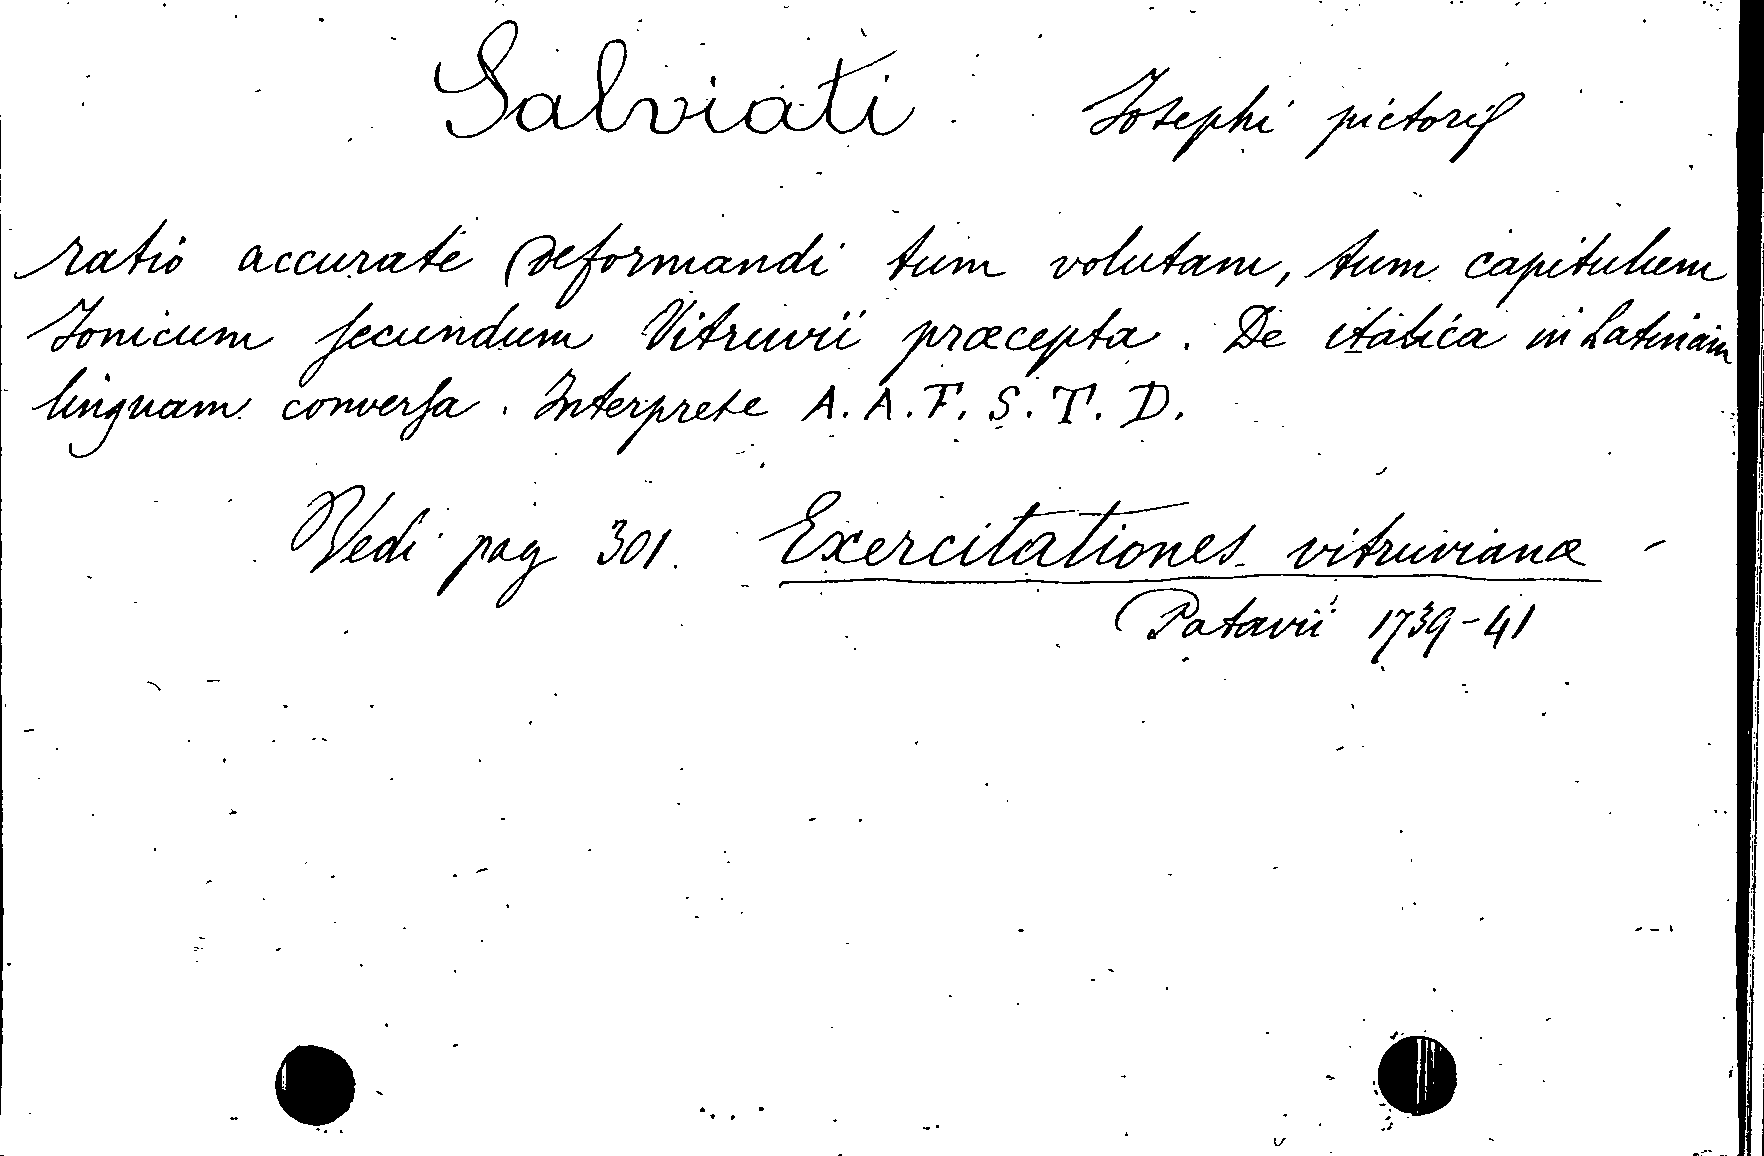 Salviati Josephi pictoris
ratio accurate deformandi tum volutam, tum capitulum
Jonicum secundum Vitruvii præcepta. De italica in Latinam
linguam conversa. Interprete A. A. F. S. T. D.
Vedi pag 301. Exercitationes vitruvianæ -
Patavii 1739-41